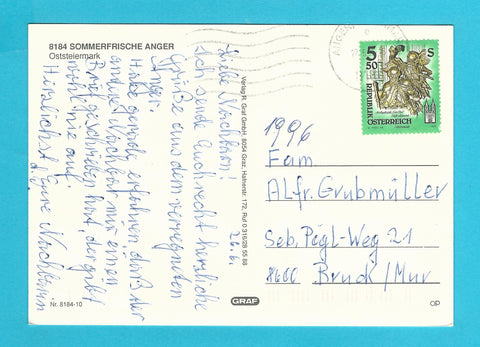 8184 SOMMERFRISCHE ANGER
Oststeiermark
26.6.
Liebe Nachbarn!
Ich sende Euch recht herzliche
Grüße aus dem verregneten
Anger.
Habe gerade erfahren daß der
andere Nachbar mir einen
Brief geschrieben hat, der geht
wohl mir auf
Herzlichst Eure Nachbarin
Verlag R. Graf GmbH, 8054 Graz, Hafnerstr. 172, Ruf 0 316/28 55 88
Nr. 8184-10
GRAF
OP
5 50 S
REPUBLIK
ÖSTERREICH
1996
Fam.
Alfr. Grubmüller
Seb. Pögl-Weg 21
8600 Bruck/Mur